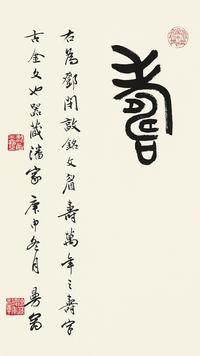 壽
右為鄧閞敦銘文眉壽萬年之壽字
古金文也器藏潘家 庚申冬月